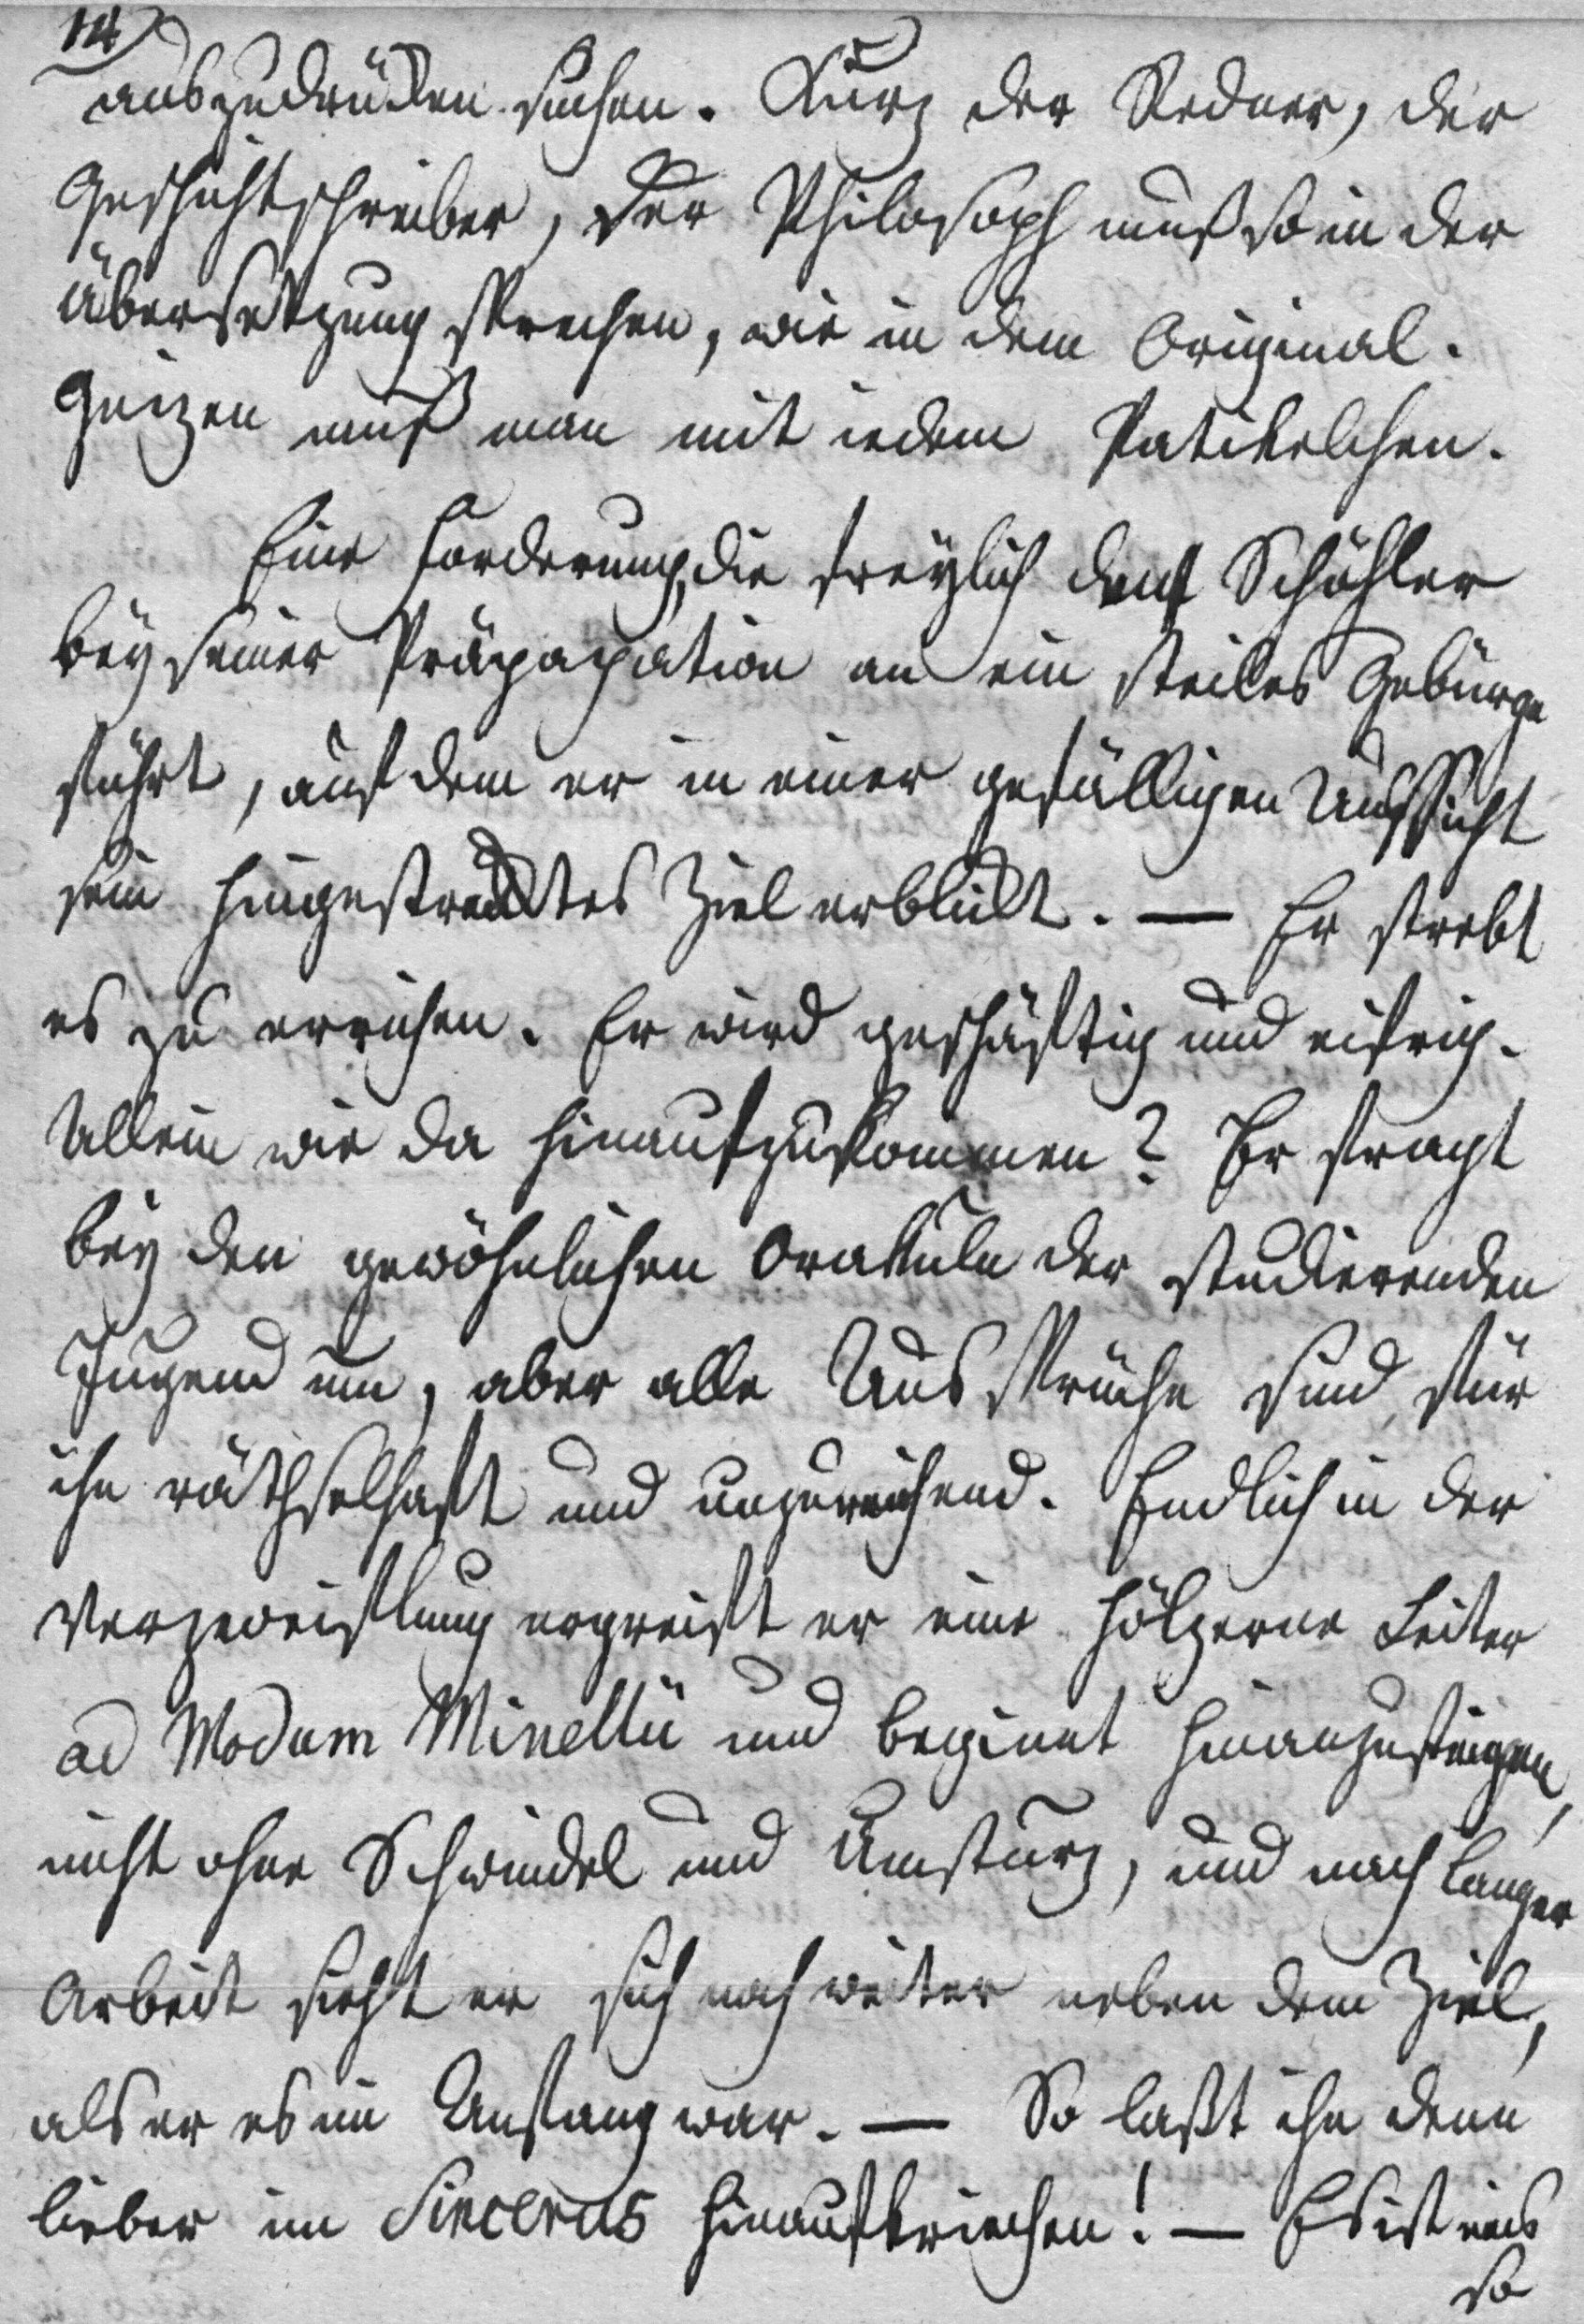 14
auszudrücken suchen. Kurz der Redner, der
Geschichtschreiber, der Philosoph muß so in der
Übersetzung sprechen, wie in dem Original.
Geizen muß man mit iedem Patikelchen.
Eine Forderung, die freylich den Schühler
bey seiner Präparation an ein steiles Gebürge
führt, auf dem er in einer gefälligen Aussicht
sein hingestecktes Ziel erblickt. — Er strebt
es zu erreichen. Er wird geschäftig und eifrig.
Allein wie da hinaufzukommen? Er fragt
bey den gewöhnlichen Orakuln der studierenden
Jugend um, aber alle Aussprüche sind für
ihn räthselhaft und unzureichend. Endlich in der
Verzweiflung ergreift er eine hölzerne Leiter
ad Modum Minellii und beginnt hinanzusteigen,
nicht ohne Schwindel und Umsturz, und nach langer
Arbeit sieht er sich noch weiter neben dem Ziel,
als er es im Anfang war. — So laßt ihn denn
lieber im Sincerus hinaufkriechen! — Es ist eins
so